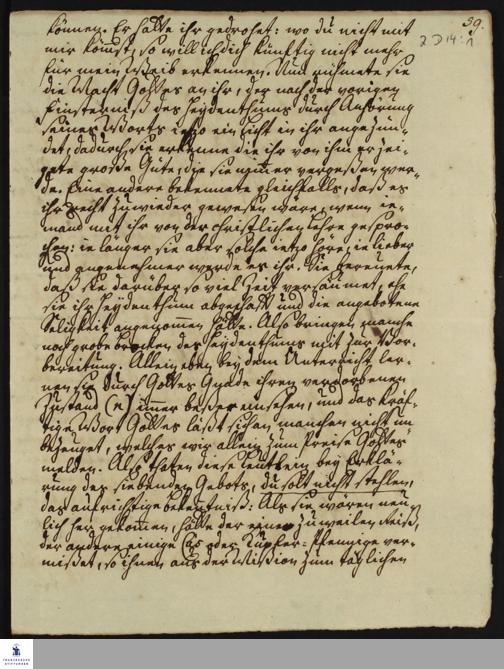 59.
2 D 14:1
können. Er hätte ihr gedrohet: wo du nicht mit
mir komst, so will ich dich künftig nicht mehr
für mein Weib erkennen. Nun rühmete sie
die Macht Gottes an ihr, der nach der vorigen
Finsterniß des Heydenthums durch Anhörung
seines Worts ietzo ein Licht in ihr angezün-
det, dadurch sie erkenne die ihr von ihm erzei-
gete große Güte, die sie nimmer vergeßen wer-
de. Eine andere bekennete gleichfalls, daß es
ihr recht zuwieder gewesen wäre, wenn ie-
mand mit ihr von der christlichen Lehre gespro-
chen: ie länger sie aber solche ietzo höre, ie lieber
und angenehmer werde es ihr. Sie bereuete,
daß sie darüber so viel Zeit versäumet, ehe
sie ihr Heydenthum abgeschafft und die angebotene
Seligkeit angenommen hätte. Also bringen manche
noch grobe Brocken des Heydenthums mit zur Vor-
bereitung. Allein eben bey dem Unterricht ler-
nen sie durch Gottes Gnade ihren verdorbenen
Zustand (n) immer beßer einsehen, und das kräf-
tige Wort Gottes läst sich an manchen nicht un
bezeuget, welches wir allein zum Preise Gottes
melden. Als thaten diese Leutlein bey Erklä-
rung des siebenden Gebots, du solt nicht stehlen,
das aufrichtige bekentniß: Als sie wären neu-
lich her gekommen, hätte der eine zuweilen Reis,
der andere einige Cas oder Kupfer-Pfennige ver-
mißet, so ihnen aus der Mission zum täglichen
FRANCKESCHE
STIFTUNGEN